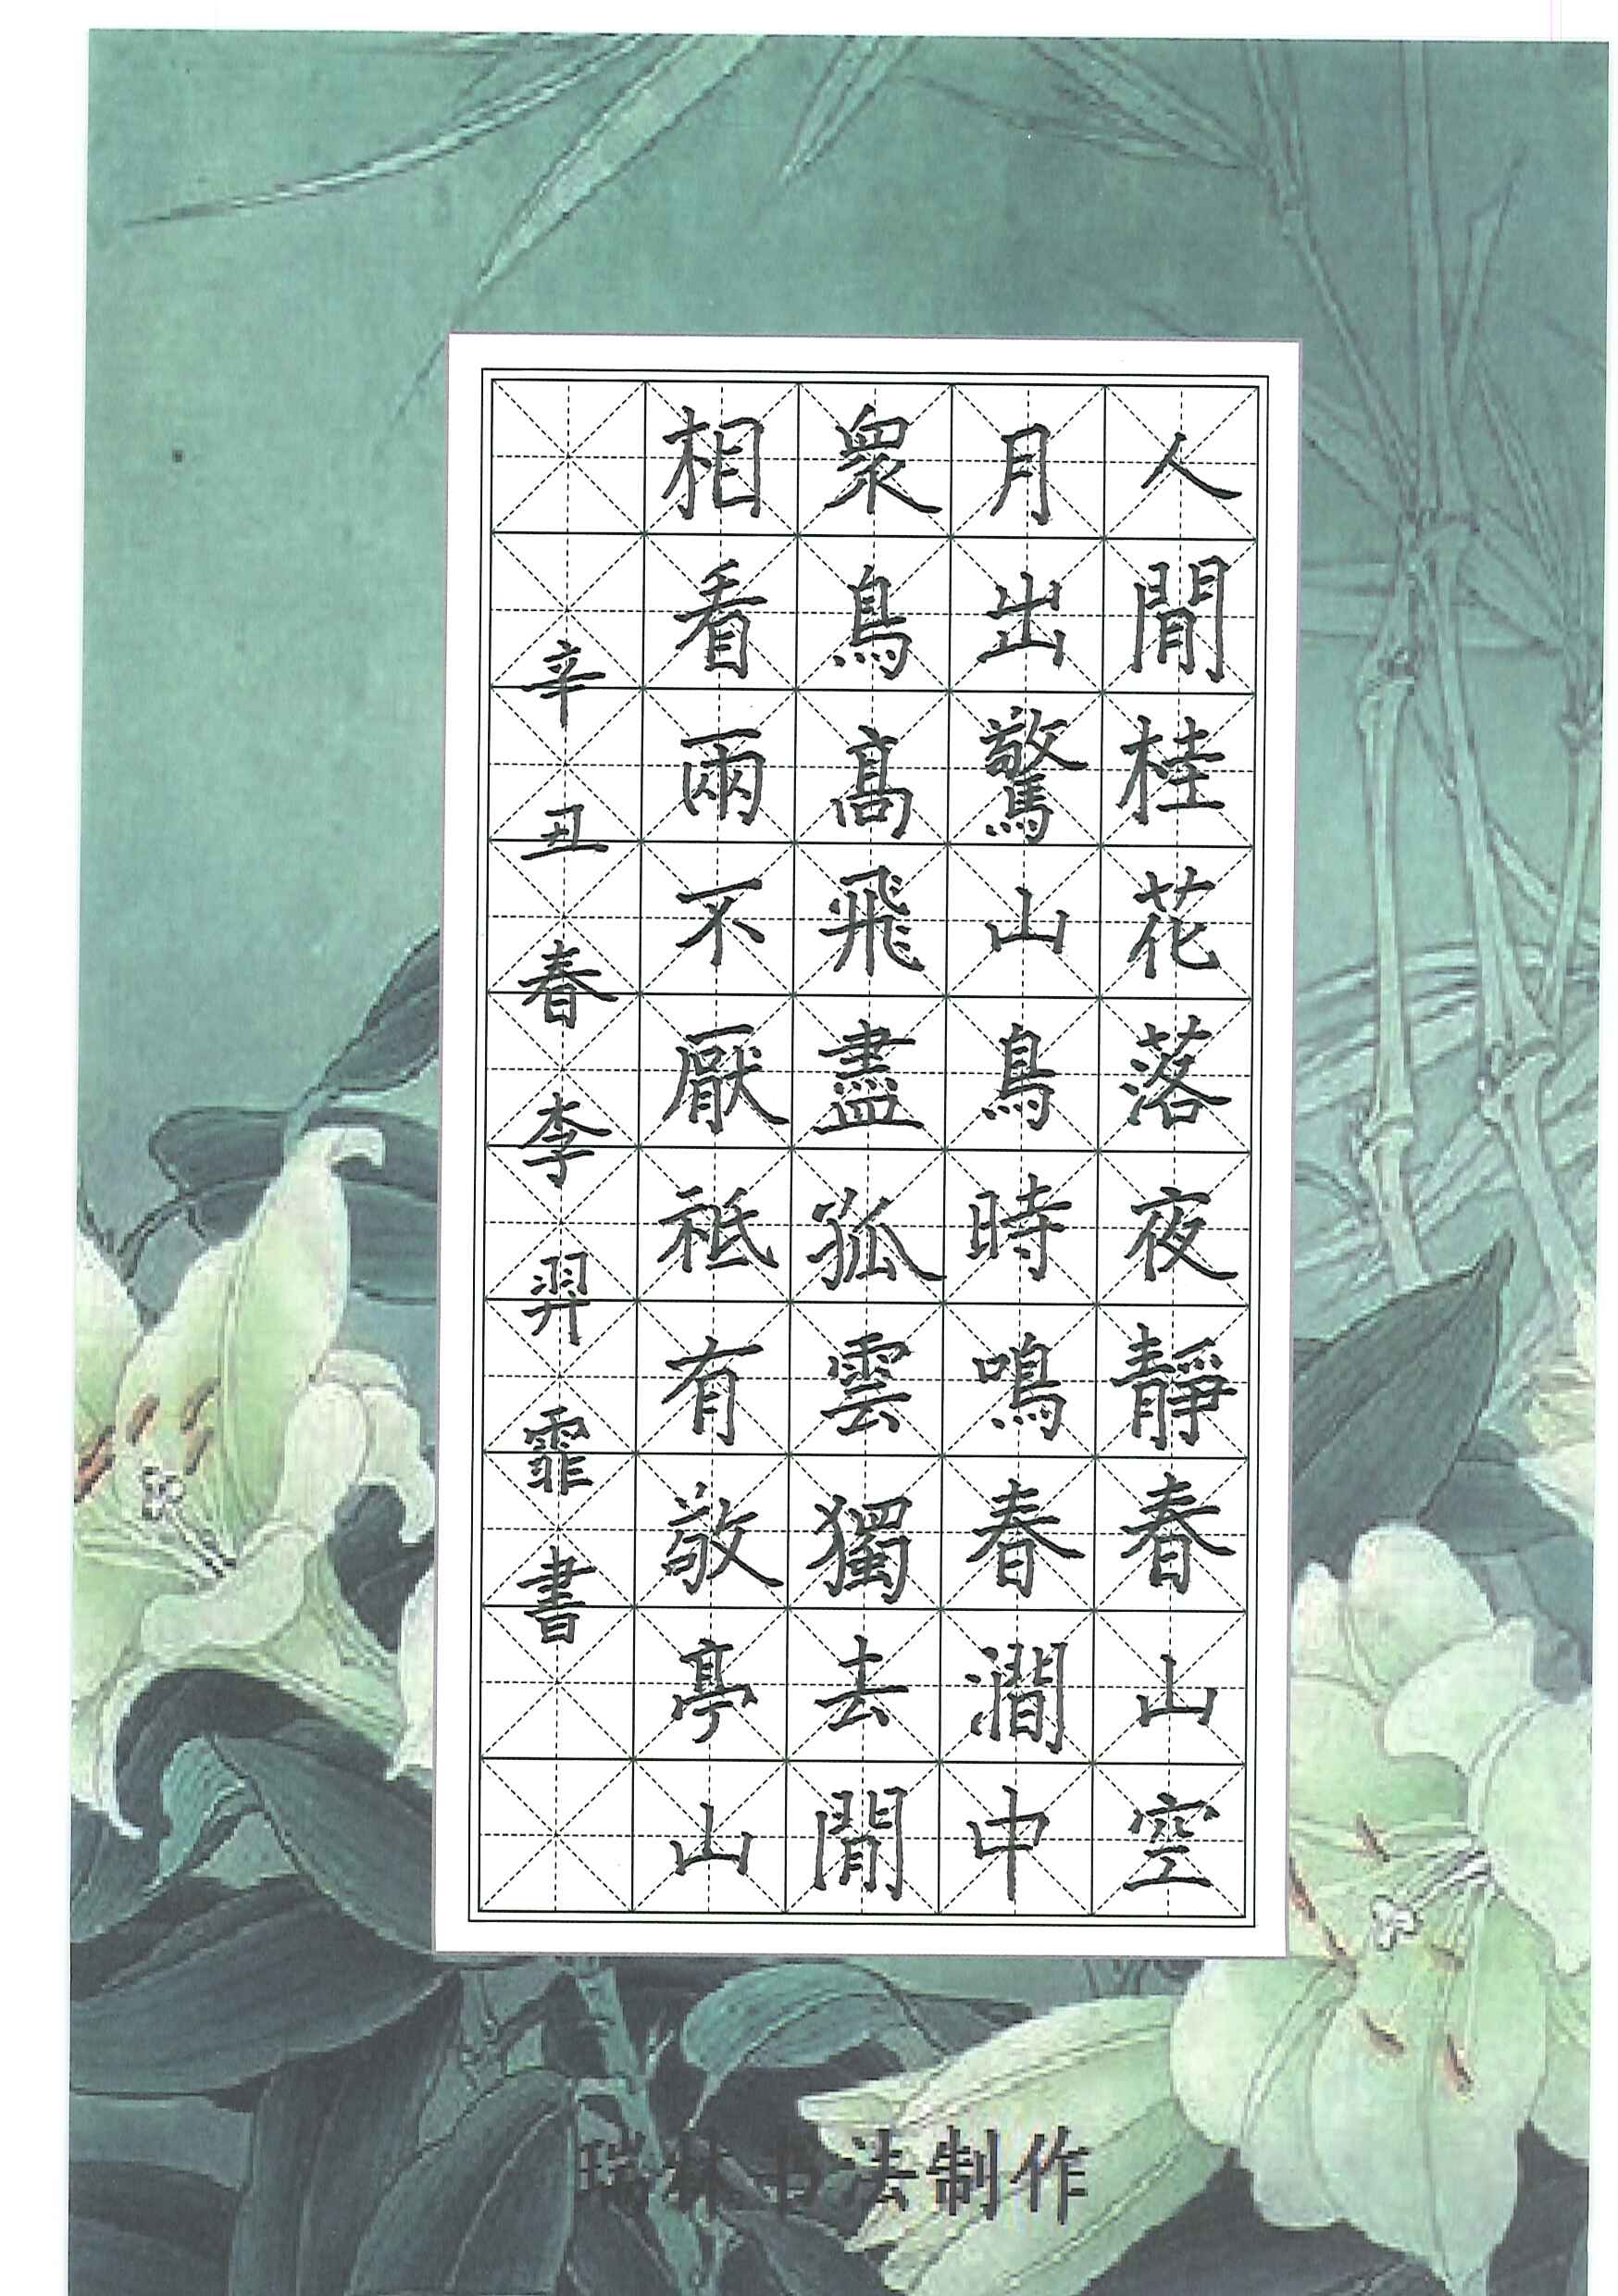 人閒桂花落夜靜春山空
月出驚山鳥時鳴春澗中
衆鳥髙飛盡孤雲獨去閒
相看兩不厭祗有敬亭山
辛丑春李羿霏書
瑞林书法制作